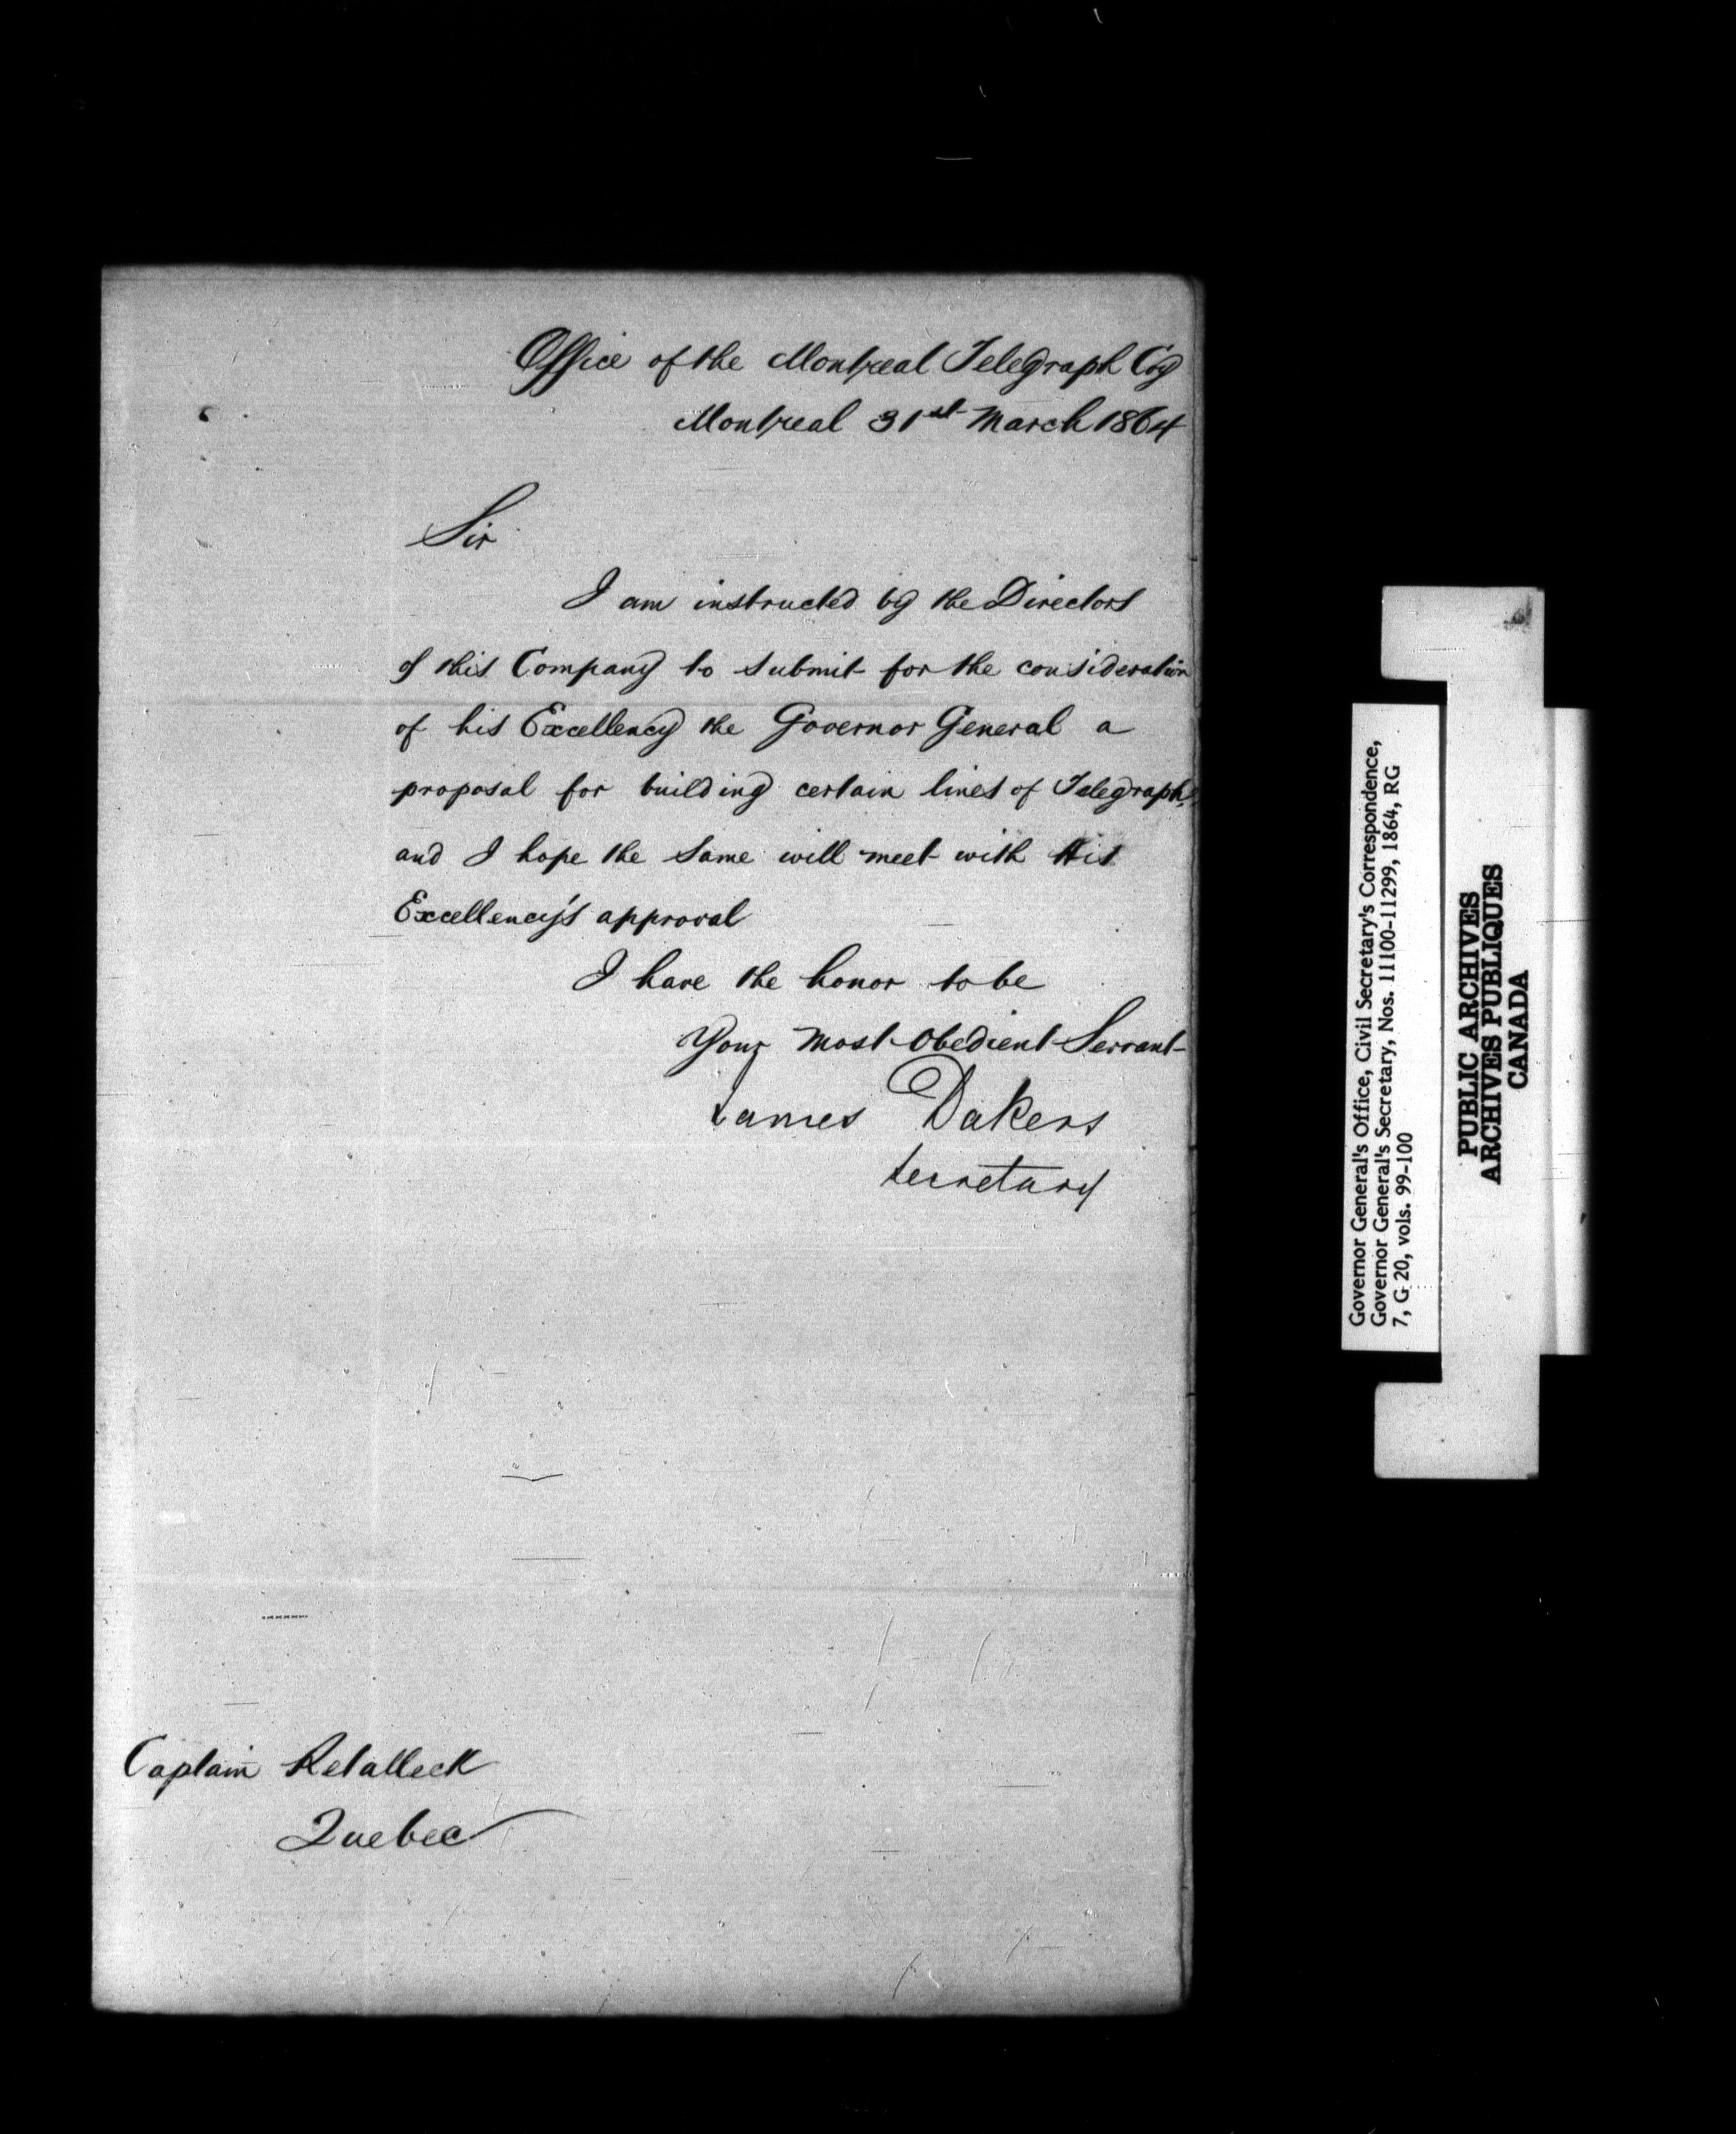 Office of the Montreal Telegraph Coy
Montreal 31st March 1864
Sir
I am instructed by the Directors
of this Company to submit for the consideration
of his Excellency the Governor General a
proposal for building certain lines of Telegraph,
and I hope the same will meet with His
Excellency's approval
I have the honor to be
Your most obedient Servant
James Dakers
Secretary
Captain Retalleck
Quebec
Governor General's Office, Civil Secretary's Correspondence,
Governor General's Secretary, Nos. 11100-11299, 1864, RG
7, G 20, vols. 99-100
PUBLIC ARCHIVES
ARCHIVES PUBLIQUES
CANADA